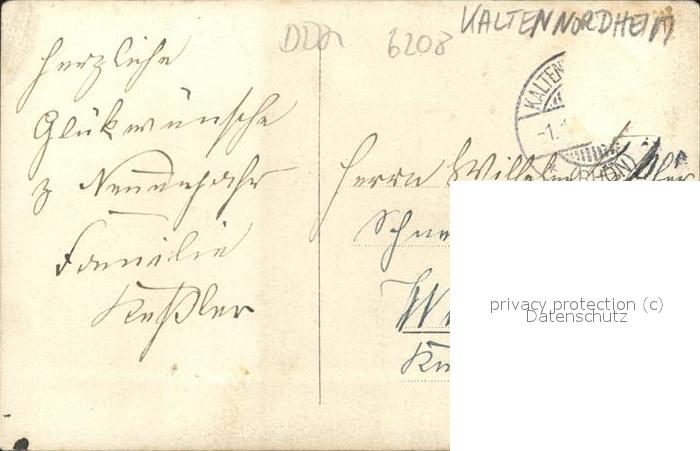 DDR 6208 KALTENNORDHEIM
Herzliche
Glükwünsche
z Neuenjahr
Familie
Keßler
KALTEN
-1.
(RHÖN)
Herrn Wilhelm
privacy protection (c)
Datenschutz